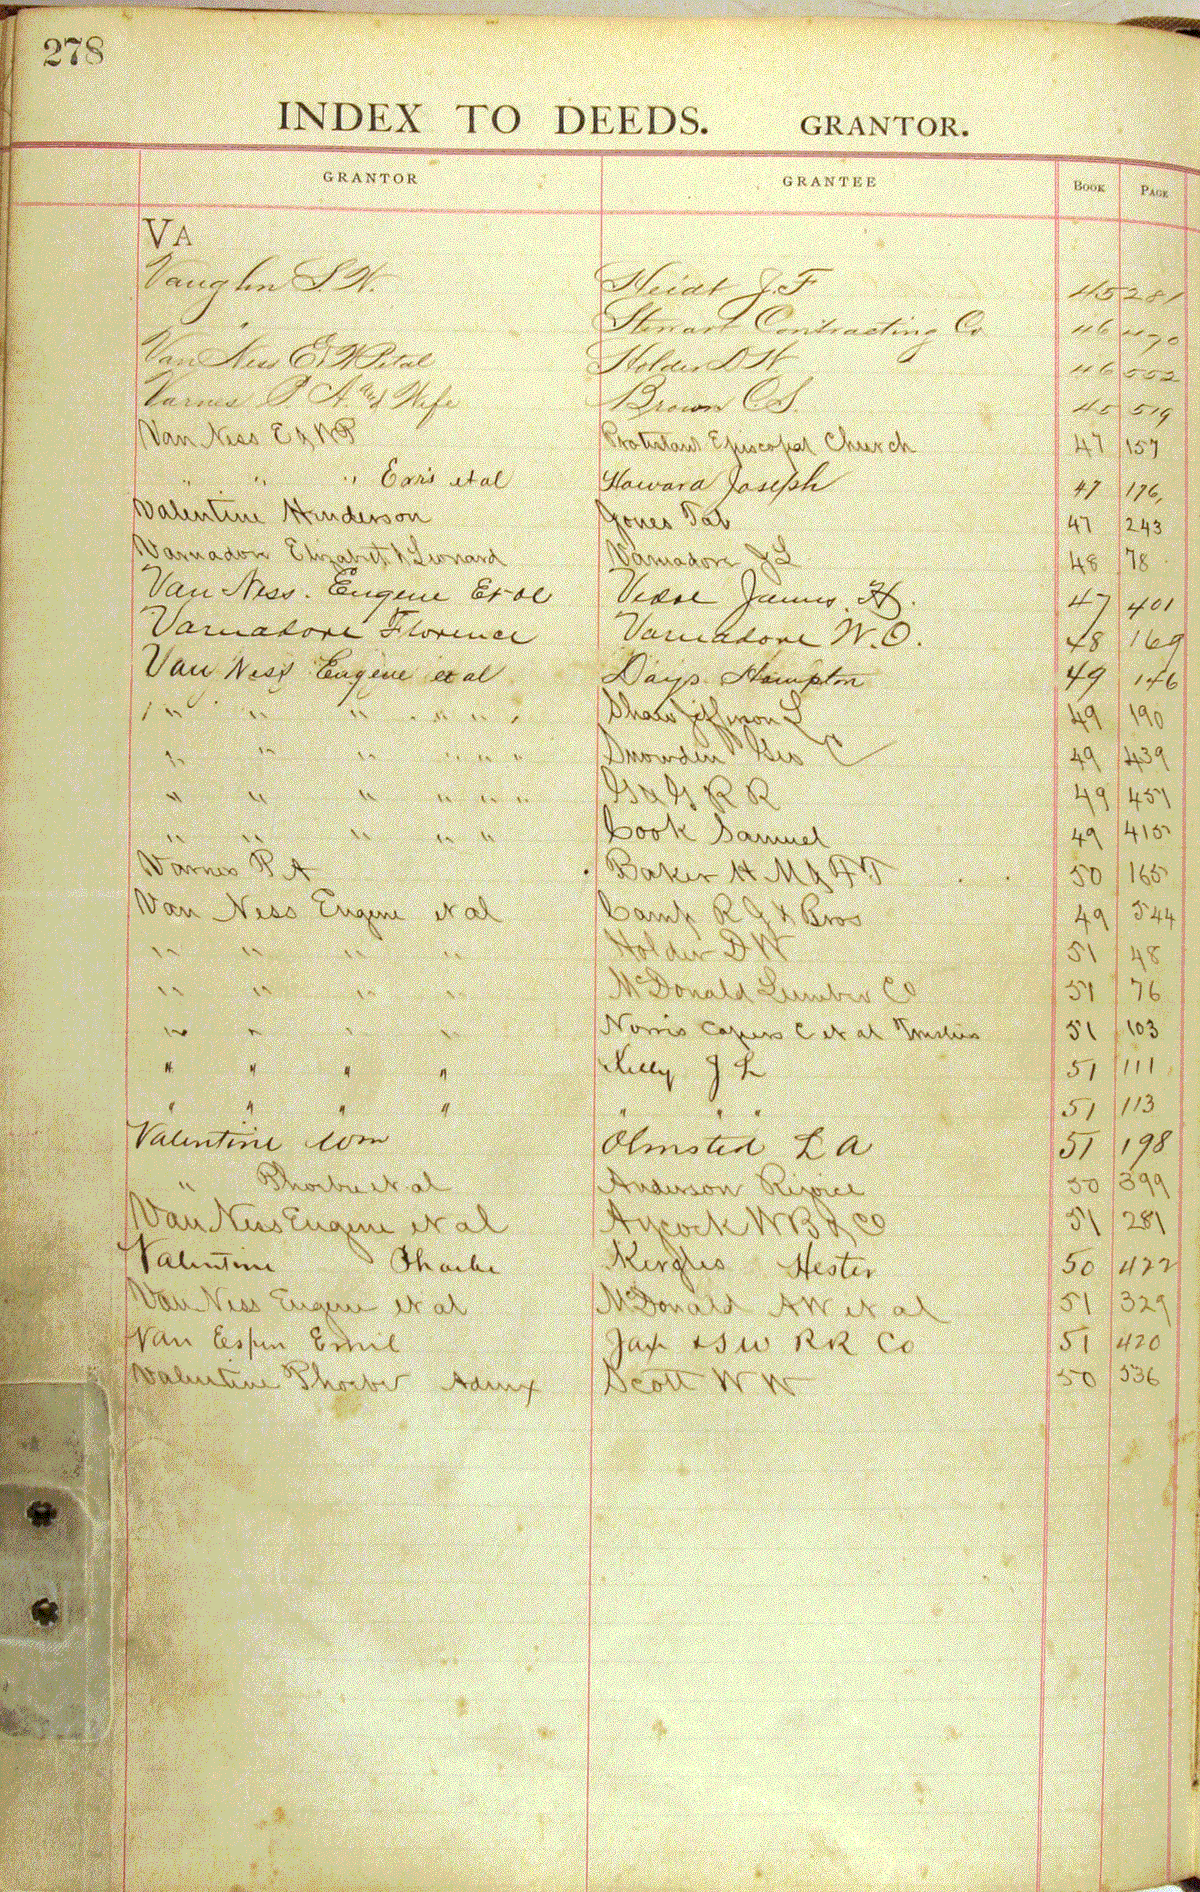 278
INDEX TO DEEDS. GRANTOR.
GRANTOR GRANTEE BOOK PAGE
VA
Vaughn S. W. Heidt J. F 45 281
" Stewart Contracting Co 46 470
Van Ness E & W P et al Holder D W 46 552
Varnes P. A and Wife Brown C S. 45 519
Van Ness E & W P Protestant Episcopal Church 47 157
" " " Exrs et al Howard Joseph 47 176
Valentine Hinderson Jones Tab 47 243
Varnadore Elizabeth & Leonard Varnadore J L 48 78
Van Ness. Eugene Et al James. H. 47 401
Varnadore Florence Varnadore W. O. 48 169
Van Ness Eugene et al Days Hampton 49 146
" " " " " " Shaw Jefferson L 49 190
" " " " " " Snowden Geo 49 439
" " " " " " R R 49 457
" " " " " Cook Samuel 49 415
Varnes P A Baker H M & F T 50 165
Van Ness Eugene et al Camp R J & Bros 49 544
" " " " Holder D W 51 48
" " " " McDonald Lumber Co 51 76
" " " " Norris Capers C et al Trustees 51 103
" " " " Kelly J L 51 111
" " " " " " " 51 113
Valentine Wm Olmsted L A 51 198
" Phoebe et al Anderson Rejoice 50 399
Van Ness Eugene et al Aycock W B & Co 51 281
Valentine Phoebe Hester 50 422
Van Ness Eugene et al McDonald A W et al 51 329
Van Espen Emil Jax & S W R R Co 51 420
Valentine Phoebe Admx Scott W W 50 536